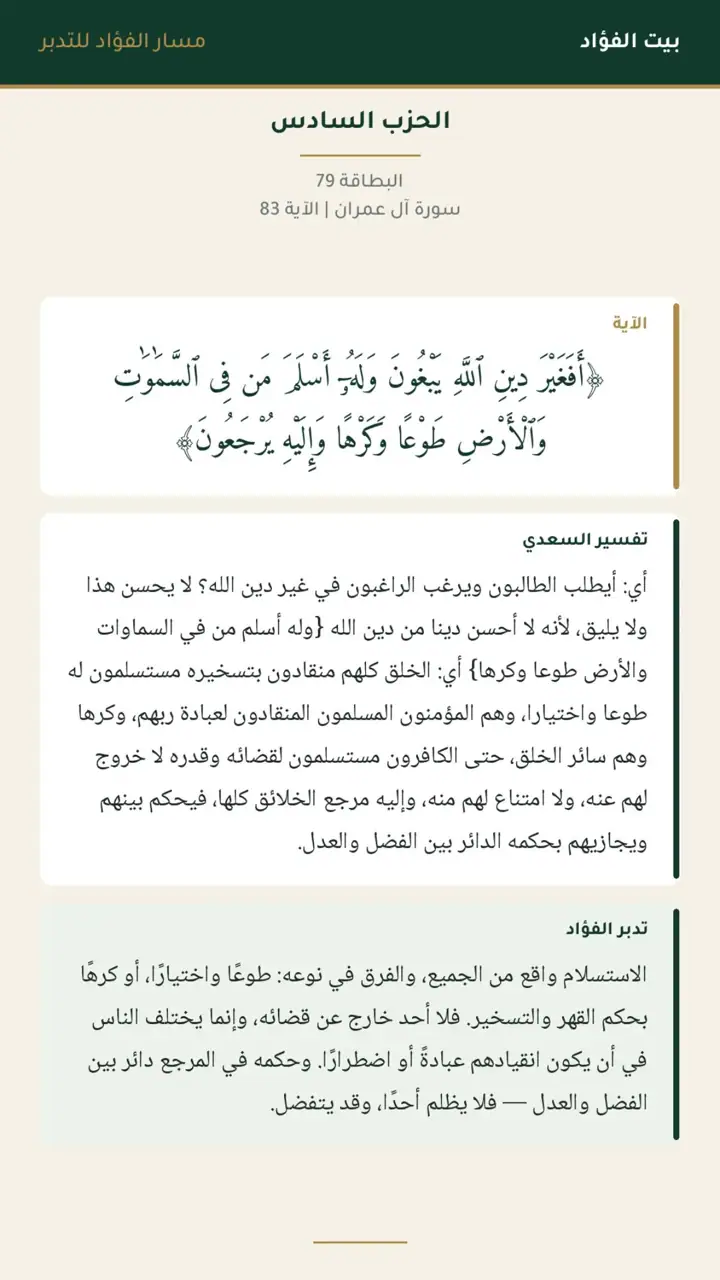 بيت الفؤاد
مسار الفؤاد للتدبر
الحزب السادس
البطاقة 79
سورة آل عمران | الآية 83
الآية
﴿أَفَغَيْرَ دِينِ ٱللَّهِ يَبْغُونَ وَلَهُۥٓ أَسْلَمَ مَن فِى ٱلسَّمَٰوَٰتِ
وَٱلْأَرْضِ طَوْعًا وَكَرْهًا وَإِلَيْهِ يُرْجَعُونَ﴾
تفسير السعدي
أي: أيطلب الطالبون ويرغب الراغبون في غير دين الله؟ لا يحسن هذا
ولا يليق، لأنه لا أحسن دينا من دين الله {وله أسلم من في السماوات
والأرض طوعا وكرها} أي: الخلق كلهم منقادون بتسخيره مستسلمون له
طوعا واختيارا، وهم المؤمنون المسلمون المنقادون لعبادة ربهم، وكرها
وهم سائر الخلق، حتى الكافرون مستسلمون لقضائه وقدره لا خروج
لهم عنه، ولا امتناع لهم منه، وإليه مرجع الخلائق كلها، فيحكم بينهم
ويجازيهم بحكمه الدائر بين الفضل والعدل.
تدبر الفؤاد
الاستسلام واقع من الجميع، والفرق في نوعه: طوعًا واختيارًا، أو كرهًا
بحكم القهر والتسخير. فلا أحد خارج عن قضائه، وإنما يختلف الناس
في أن يكون انقيادهم عبادةً أو اضطرارًا. وحكمه في المرجع دائر بين
الفضل والعدل — فلا يظلم أحدًا، وقد يتفضل.